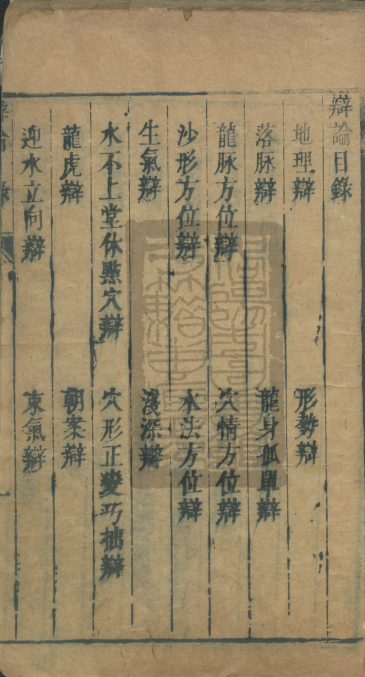 辯論目錄
地理辯 形勢辯
落脉辯 龍身孤單辯
龍脉方位辯 穴情方位辯
沙形方位辯 水法方位辯
生氣辯 淺深辯
水不上堂休點穴辯 穴形正變巧拙辯
龍虎辯 朝案辯
迎水立向辯 東氣辯